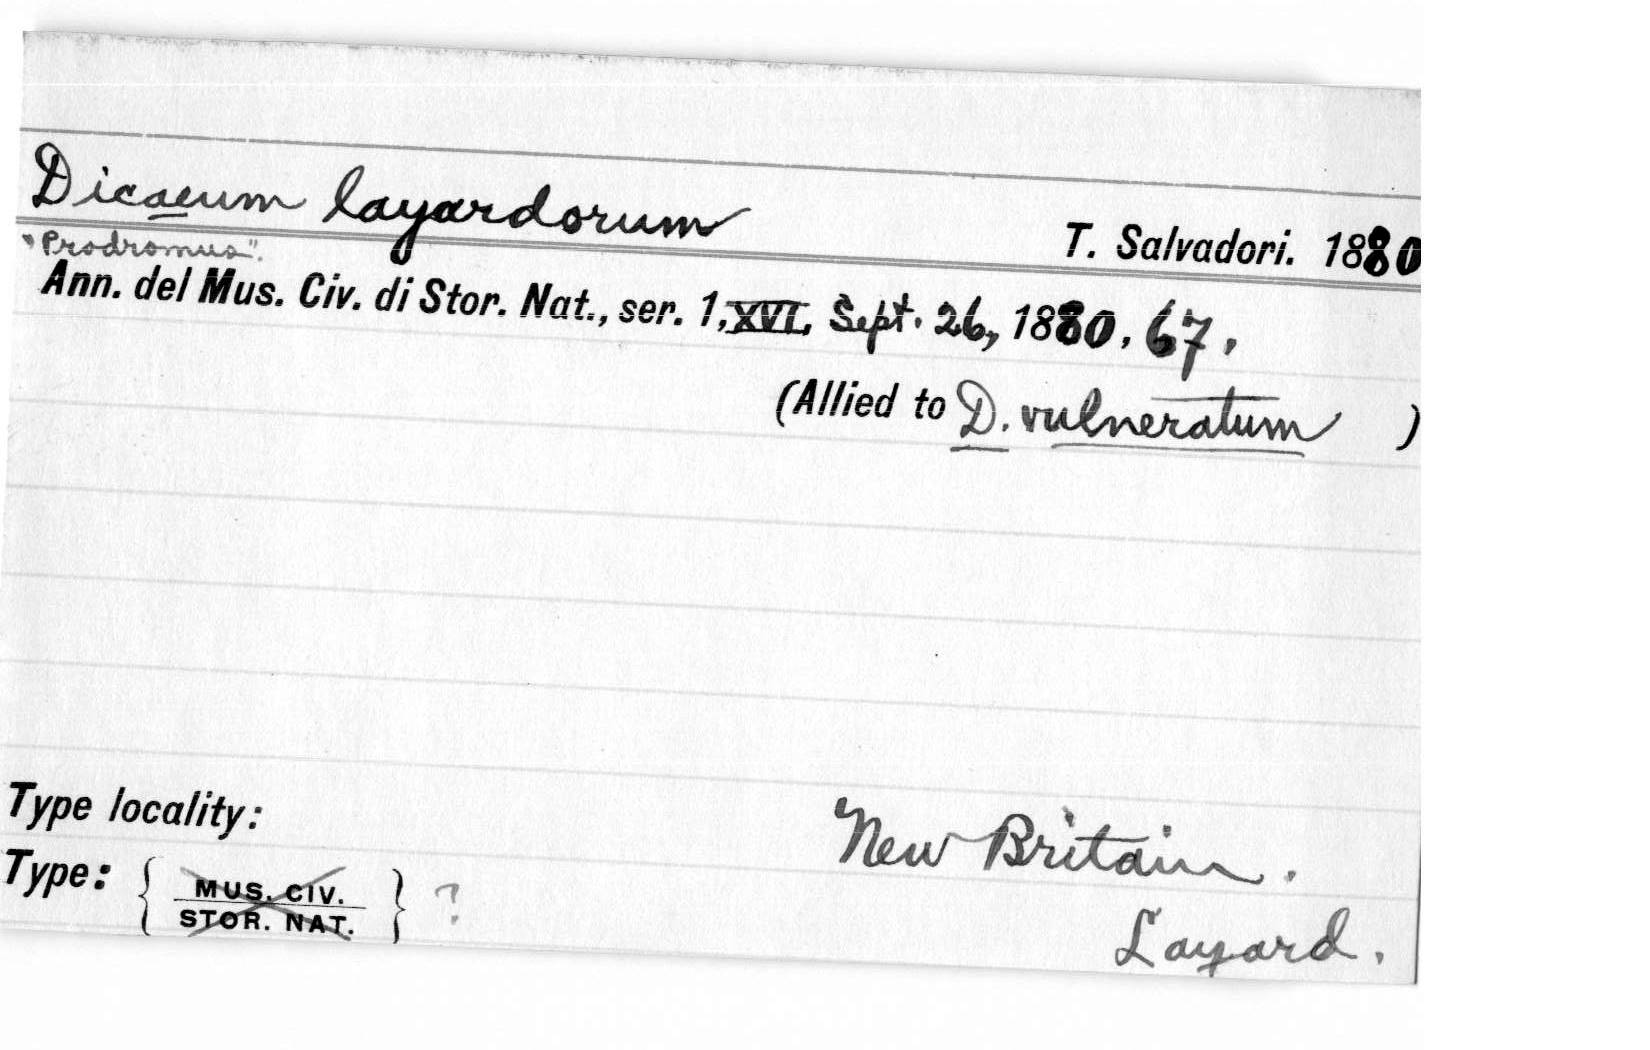 Dicaeum layardorum
T. Salvadori. 1880
"Prodromus".
Ann. del Mus. Civ. di Stor. Nat., ser. 1, XVI, Sept. 26, 1880, 67.
(Allied to D. vulneratum )
Type locality:
New Britain.
Type: { MUS. CIV.
STOR. NAT. } ?
Layard.